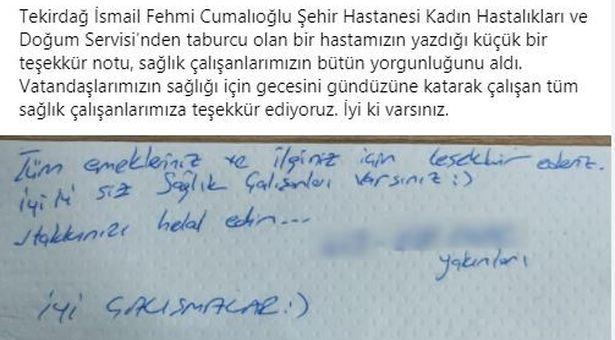 Tekirdağ İsmail Fehmi Cumalıoğlu Şehir Hastanesi Kadın Hastalıkları ve
Doğum Servisi'nden taburcu olan bir hastamızın yazdığı küçük bir
teşekkür notu, sağlık çalışanlarımızın bütün yorgunluğunu aldı.
Vatandaşlarımızın sağlığı için gecesini gündüzüne katarak çalışan tüm
sağlık çalışanlarımıza teşekkür ediyoruz. İyi ki varsınız.
Tüm emekleriniz ve ilginiz için teşekkür ederiz.
iyi ki siz Sağlık Çalışanları varsınız :)
Hakkınızı helal edin...
yakınları
iyi ÇALIŞMALAR :)